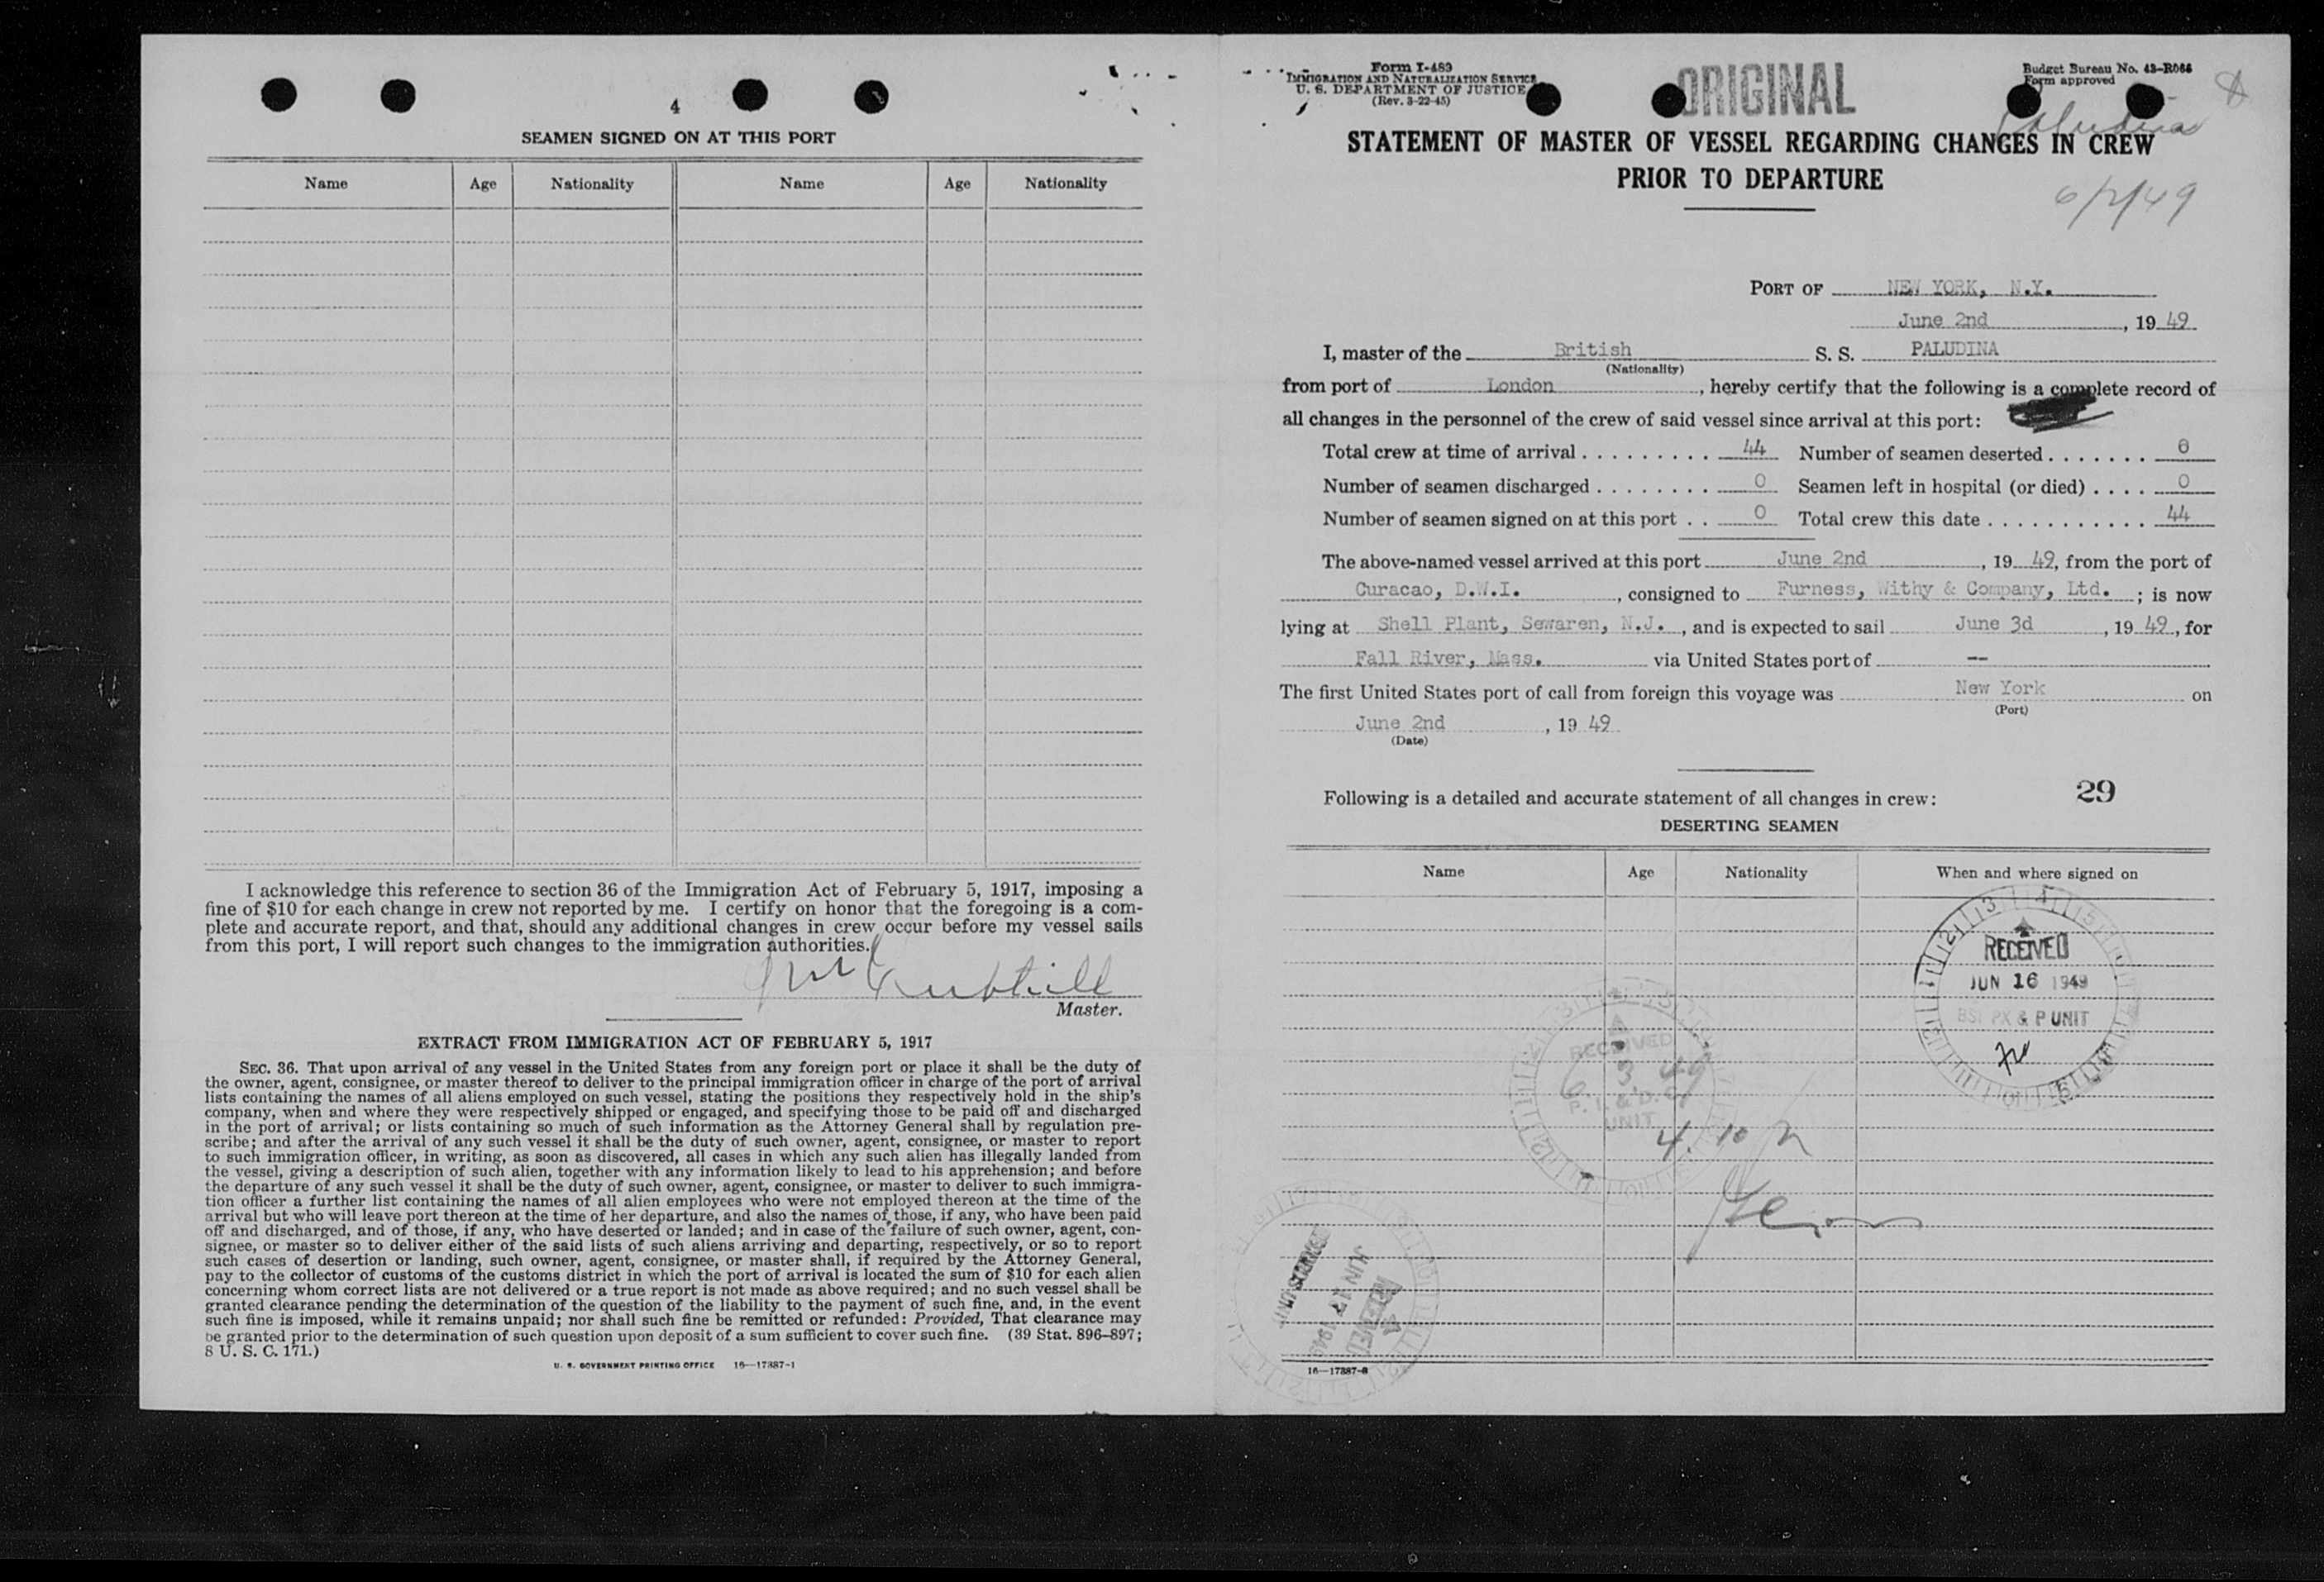 4
SEAMEN SIGNED ON AT THIS PORT
Name Age Nationality Name Age Nationality
I acknowledge this reference to section 36 of the Immigration Act of February 5, 1917, imposing a
fine of $10 for each change in crew not reported by me. I certify on honor that the foregoing is a com-
plete and accurate report, and that, should any additional changes in crew occur before my vessel sails
from this port, I will report such changes to the immigration authorities.
Master.
EXTRACT FROM IMMIGRATION ACT OF FEBRUARY 5, 1917
SEC. 36. That upon arrival of any vessel in the United States from any foreign port or place it shall be the duty of
the owner, agent, consignee, or master thereof to deliver to the principal immigration officer in charge of the port of arrival
lists containing the names of all aliens employed on such vessel, stating the positions they respectively hold in the ship's
company, when and where they were respectively shipped or engaged, and specifying those to be paid off and discharged
in the port of arrival; or lists containing so much of such information as the Attorney General shall by regulation pre-
scribe; and after the arrival of any such vessel it shall be the duty of such owner, agent, consignee, or master to report
to such immigration officer, in writing, as soon as discovered, all cases in which any such alien has illegally landed from
the vessel, giving a description of such alien, together with any information likely to lead to his apprehension; and before
the departure of any such vessel it shall be the duty of such owner, agent, consignee, or master to deliver to such immigra-
tion officer a further list containing the names of all alien employees who were not employed thereon at the time of the
arrival but who will leave port thereon at the time of her departure, and also the names of those, if any, who have been paid
off and discharged, and of those, if any, who have deserted or landed; and in case of the failure of such owner, agent, con-
signee, or master so to deliver either of the said lists of such aliens arriving and departing, respectively, or so to report
such cases of desertion or landing, such owner, agent, consignee, or master shall, if required by the Attorney General,
pay to the collector of customs of the customs district in which the port of arrival is located the sum of $10 for each alien
concerning whom correct lists are not delivered or a true report is not made as above required; and no such vessel shall be
granted clearance pending the determination of the question of the liability to the payment of such fine, and, in the event
such fine is imposed, while it remains unpaid; nor shall such fine be remitted or refunded: Provided, That clearance may
be granted prior to the determination of such question upon deposit of a sum sufficient to cover such fine. (39 Stat. 896-897;
8 U. S. C. 171.)
U. S. GOVERNMENT PRINTING OFFICE 16—17887-1
Form I-489
IMMIGRATION AND NATURALIZATION SERVICE
U. S. DEPARTMENT OF JUSTICE
(Rev. 3-22-45)
ORIGINAL
Budget Bureau No. 43-R066
Form approved
Paludina
STATEMENT OF MASTER OF VESSEL REGARDING CHANGES IN CREW
PRIOR TO DEPARTURE
6/2/49
PORT OF NEW YORK, N.Y.
June 2nd, 19 49
I, master of the British S. S. PALUDINA
(Nationality)
from port of London, hereby certify that the following is a complete record of
all changes in the personnel of the crew of said vessel since arrival at this port:
Total crew at time of arrival . . . . . . . . . 44 Number of seamen deserted . . . . . . . 0
Number of seamen discharged . . . . . . . . 0 Seamen left in hospital (or died) . . . . 0
Number of seamen signed on at this port . . 0 Total crew this date . . . . . . . . . . . . 44
The above-named vessel arrived at this port June 2nd, 19 49, from the port of
Curacao, D.W.I., consigned to Furness, Withy & Company, Ltd. ; is now
lying at Shell Plant, Sewaren, N.J., and is expected to sail June 3d, 19 49, for
Fall River, Mass. via United States port of --
The first United States port of call from foreign this voyage was New York on
(Port)
June 2nd, 19 49
(Date)
29
Following is a detailed and accurate statement of all changes in crew:
DESERTING SEAMEN
Name Age Nationality When and where signed on
RECEIVED
JUN 16 1949
BSI PX & P UNIT
RECEIVED
6 3 49
UNIT
4.10
RECEIVED
JUN 17 1949
16—17887-3